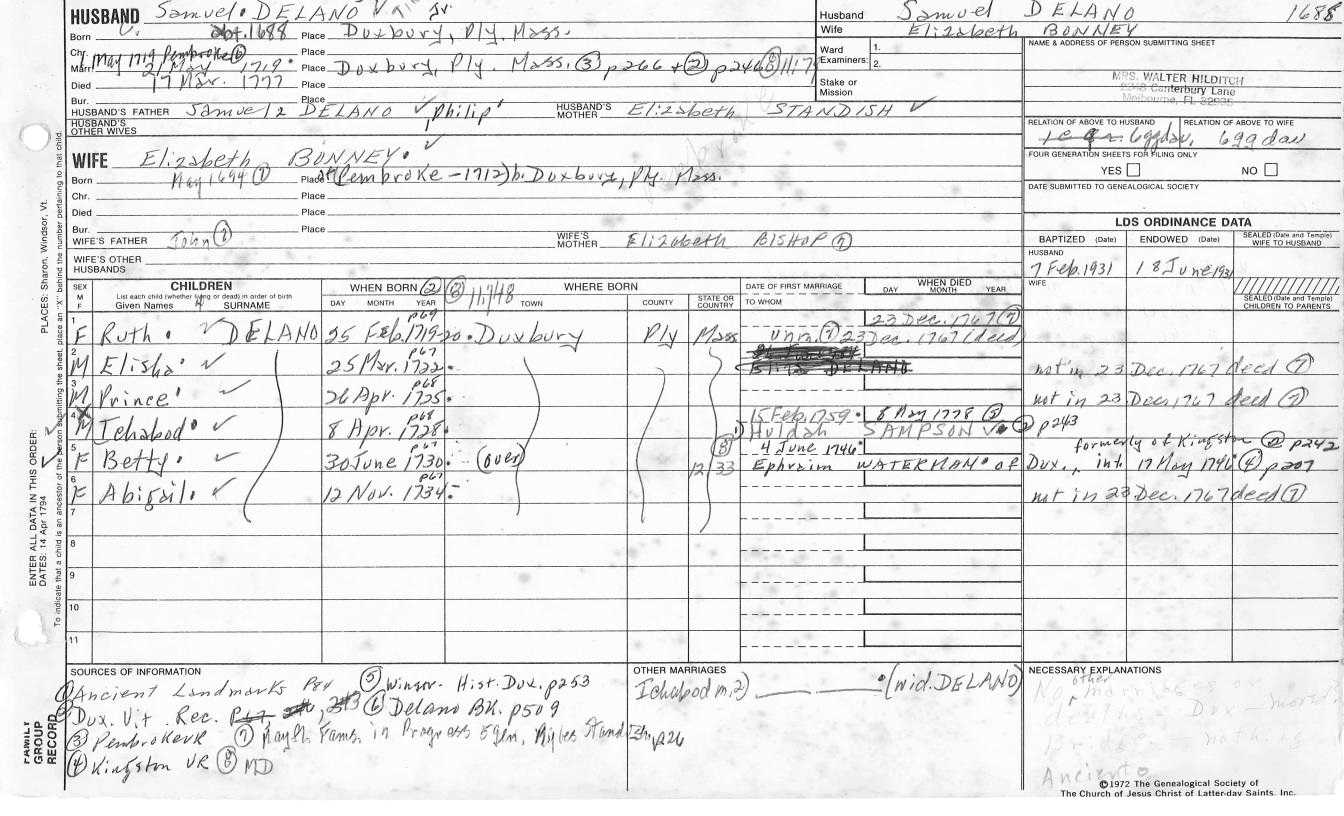 HUSBAND Samuel DELANO Jr.
Born abt. 1688 Place Duxbury, Ply. Mass.
Chr. 1 May 1719 Pembroke ⑥
Marr. 2 May 1719 Place Duxbury, Ply. Mass. ③ p266 + ② p246 ⑧ 11:7
Died 17 Mar. 1777 Place
Bur. Place
HUSBAND'S FATHER Samuel 2 DELANO ✓, Philip' HUSBAND'S MOTHER Elizabeth STANDISH ✓
HUSBAND'S OTHER WIVES
Husband Samuel DELANO 1688
Wife Elizabeth BONNEY
Ward Examiners: 1. 2.
Stake or Mission
NAME & ADDRESS OF PERSON SUBMITTING SHEET
MRS. WALTER HILDITCH
Canterbury Lane
Melbourne, FL 32935
RELATION OF ABOVE TO HUSBAND 6ggdau. RELATION OF ABOVE TO WIFE 6ggdau
FOUR GENERATION SHEETS FOR FILING ONLY
YES NO
DATE SUBMITTED TO GENEALOGICAL SOCIETY
WIFE Elizabeth BONNEY
Born May 1694 ⑦ Place of (Pembroke - 1712) b. Duxbury, Ply. Mass.
Chr. Place
Died Place
Bur. Place
WIFE'S FATHER John ⑦ WIFE'S MOTHER Elizabeth BISHOP ⑦
WIFE'S OTHER HUSBANDS
LDS ORDINANCE DATA
BAPTIZED (Date) ENDOWED (Date) SEALED (Date and Temple) WIFE TO HUSBAND
HUSBAND 7 Feb. 1931 18 June 1931
WIFE
SEALED (Date and Temple) CHILDREN TO PARENTS
SEX M F CHILDREN List each child (whether living or dead) in order of birth Given Names SURNAME
WHEN BORN ② ⑧ 11:148 DAY MONTH YEAR
WHERE BORN TOWN COUNTY STATE OR COUNTRY
DATE OF FIRST MARRIAGE TO WHOM
WHEN DIED DAY MONTH YEAR
23 Dec. 1767 ⑦
1 F Ruth ✓ DELANO 25 Feb. 1719-20 p69 Duxbury Ply Mass unm. ⑦ 23 Dec. 1767 (decd)
2 M Elisha ✓ 25 Mar. 1722 p67 not in 23 Dec. 1767 decd ⑦
3 M Prince ✓ 26 Apr. 1725 p68 not in 23 Dec. 1767 decd ⑦
15 Feb. 1759 8 May 1778 ⑤
4 X M Ichabod ✓ 8 Apr. 1728 p68 1) Huldah SAMPSON ✓ ② p243
⑧ 4 June 1746 formerly of Kingston ② p242
5 F Betty ✓ 30 June 1730 p67 (over) 12 33 Ephraim WATERMAN of Dux., int. 17 May 1746 ④ p207
6 F Abigail ✓ 12 Nov. 1734 p67 not in 23 Dec. 1767 decd ⑦
7
8
9
10
11
SOURCES OF INFORMATION
① Ancient Landmarks
② Dux. Vit. Rec.
③ Pembroke VR
④ Kingston VR
⑤ Winsor Hist. Dux. p253
⑥ Delano Bk. p509
⑦ Mayfl. Fams. in Progress 5 gen., Myles Standish, p26
⑧ MD
OTHER MARRIAGES
Ichabod m. 2) (wid. DELANO)
NECESSARY EXPLANATIONS
No other marriages or
Dux
nothing
©1972 The Genealogical Society of
The Church of Jesus Christ of Latter-day Saints, Inc.
PLACES: Sharon, Windsor, Vt.
ENTER ALL DATA IN THIS ORDER:
DATES: 14 Apr 1794
To indicate that a child is an ancestor of the person submitting the sheet, place an "X" behind the number pertaining to that child.
FAMILY GROUP RECORD